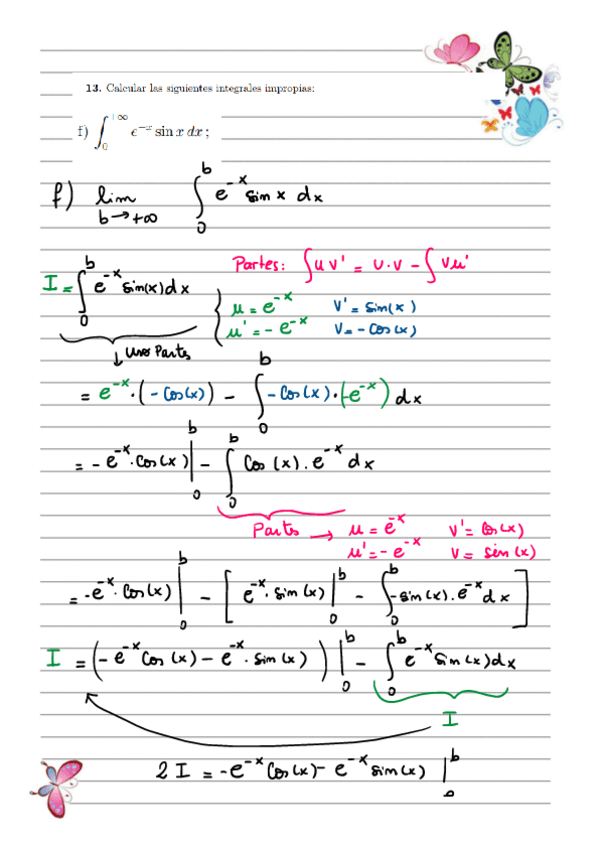 13. Calcular las siguientes integrales impropias:
f) ∫₀^{+∞} e^{-x} sin x dx ;
f) lim_{b→+∞} ∫₀^b e^{-x} sin x dx
Partes: ∫uv' = u·v - ∫vu'
I = ∫₀^b e^{-x} sin(x) dx
u = e^{-x} v' = sin(x)
u' = -e^{-x} v = -cos(x)
↓ Uso Partes
= e^{-x}·(-cos(x)) - ∫₀^b -cos(x)·(-e^{-x}) dx
= -e^{-x}·cos(x) |₀^b - ∫₀^b cos(x).e^{-x} dx
Parts → u = e^{-x} v' = cos(x)
u' = -e^{-x} v = sen(x)
= -e^{-x}·cos(x) |₀^b - [ e^{-x}·sin(x) |₀^b - ∫₀^b -sin(x).e^{-x} dx ]
I = (-e^{-x} cos(x) - e^{-x}·sin(x)) |₀^b - ∫₀^b e^{-x} sin(x) dx
I
2 I = -e^{-x} cos(x) - e^{-x} sin(x) |₀^b